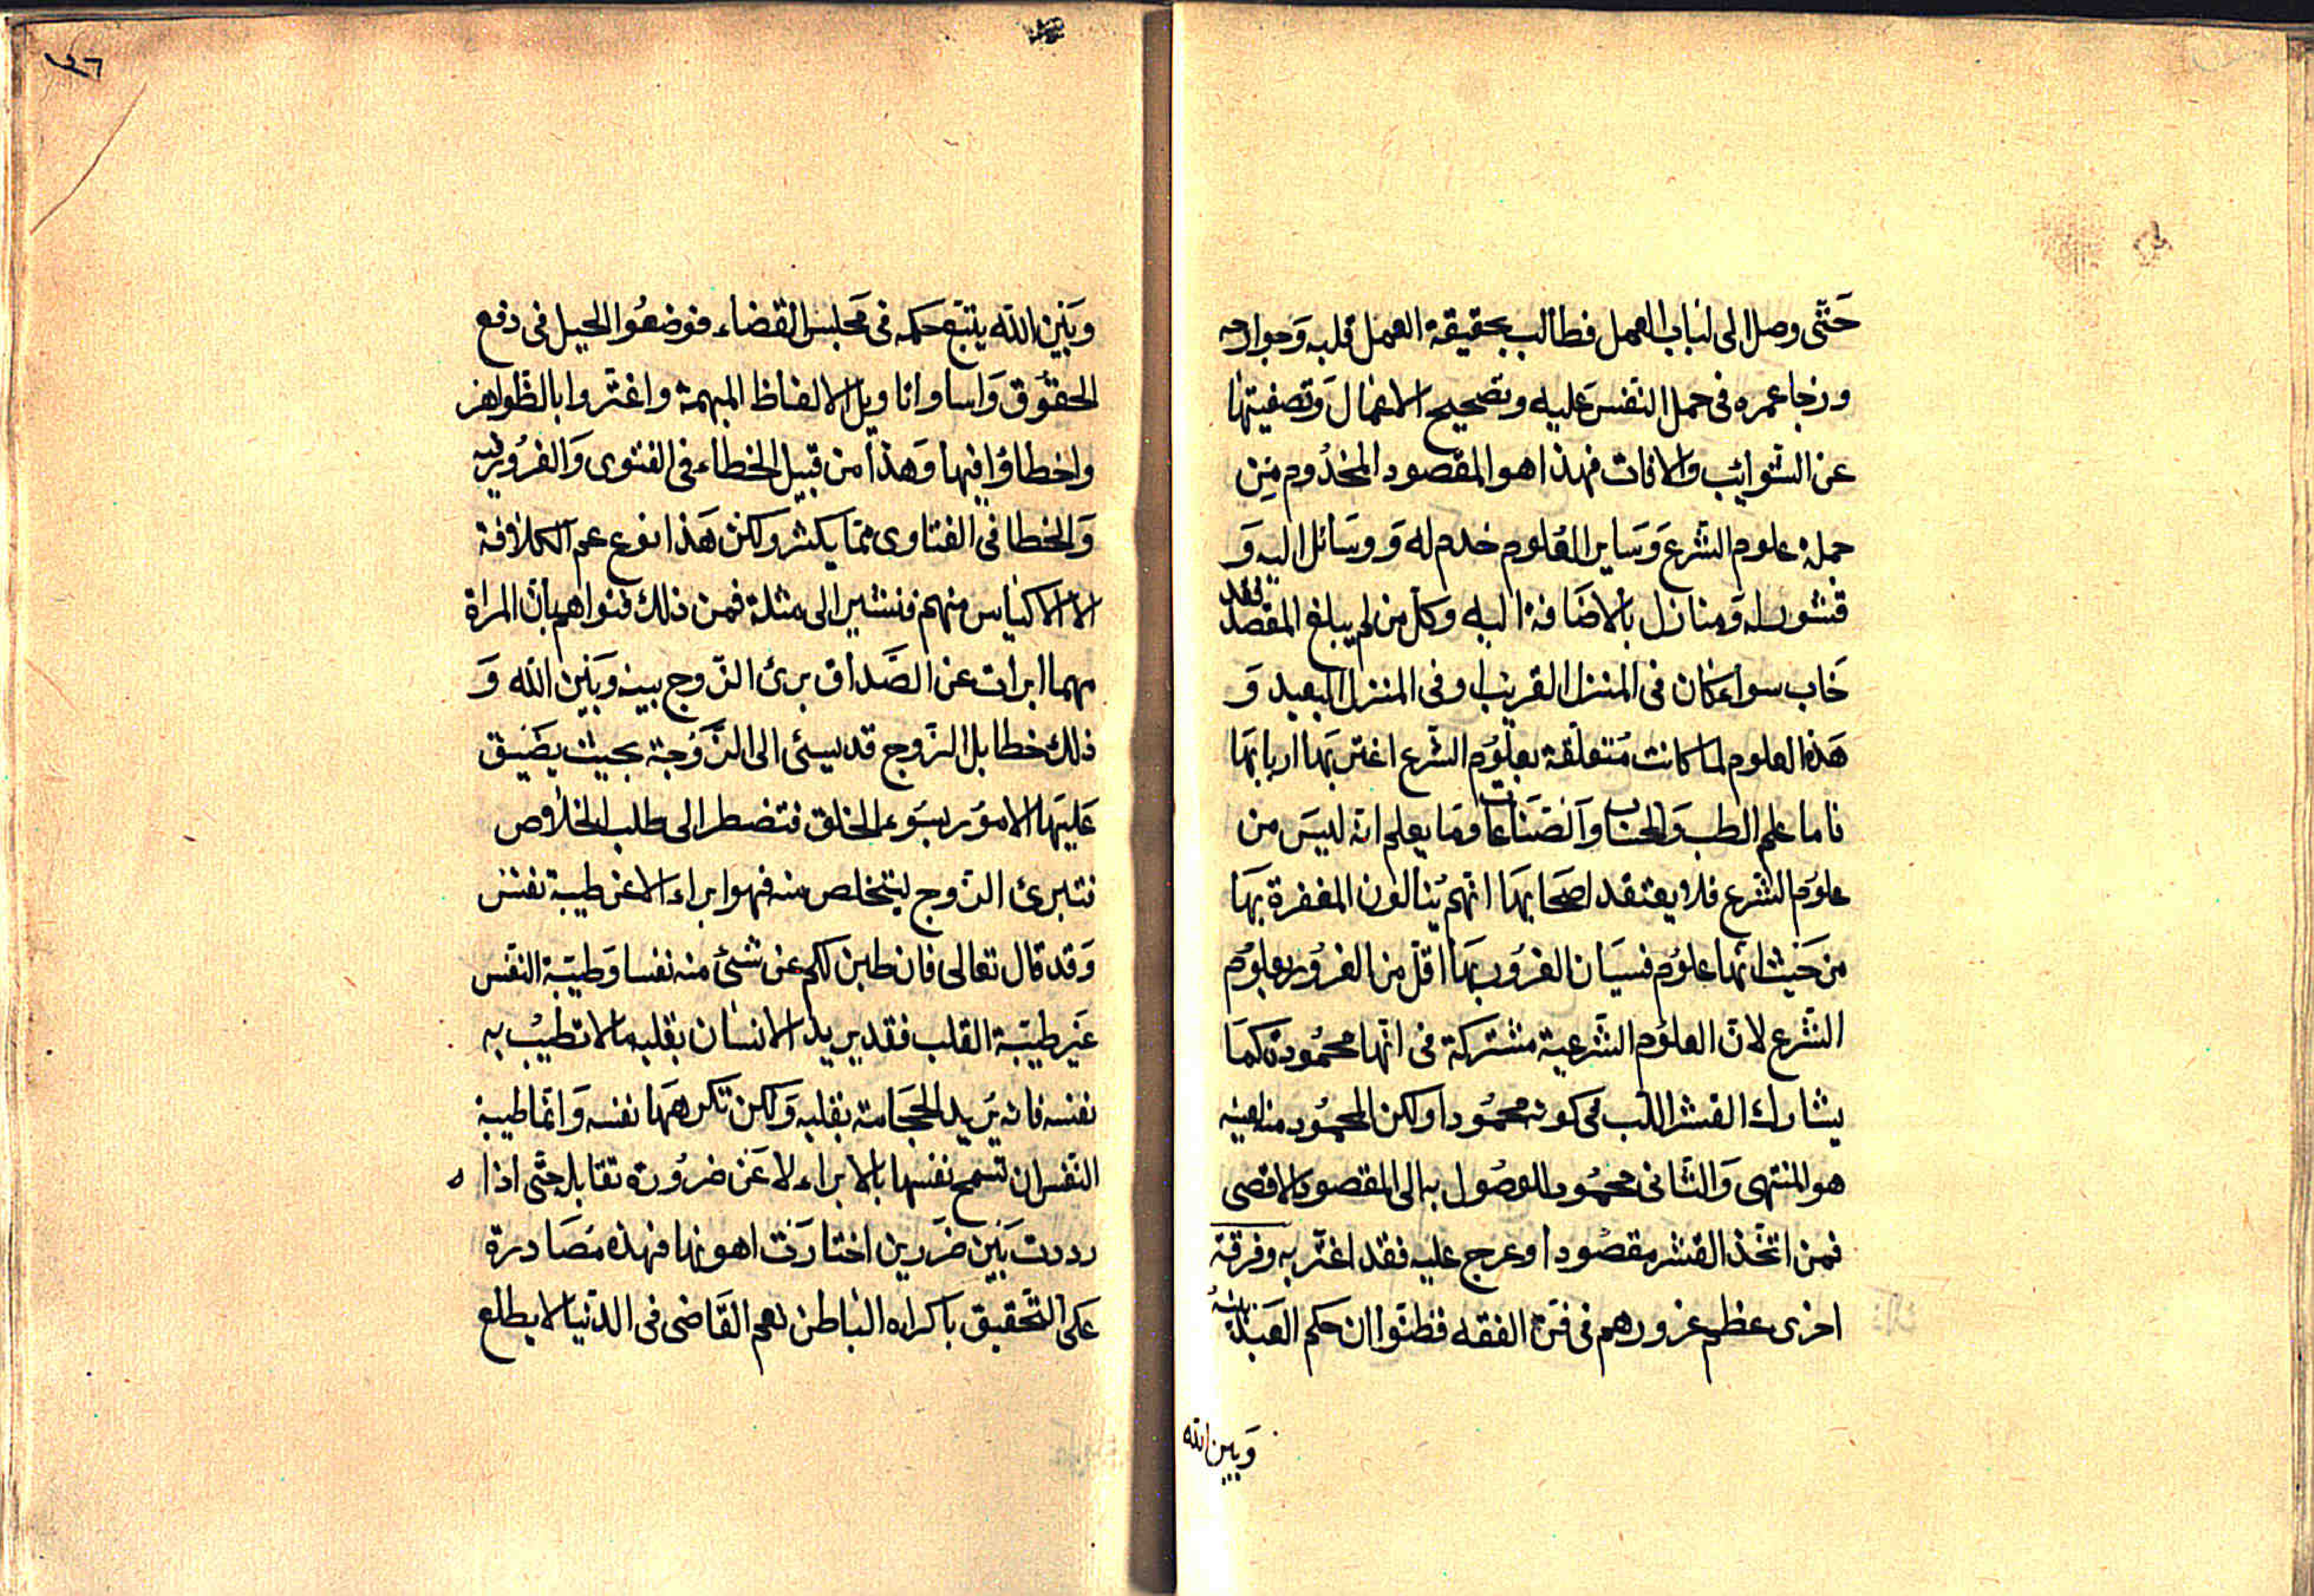 حَتّى وصل الى لباب العمل فطالب بحقيقة العمل قلبه وَجوارحه
ورجا عمره فى حمل النفس عليه وتصحيح الاعمال وَتصفيتها
عن الشوائب والافات فهذا هو المقصود المخدُوم مِن
جملة علوم الشرع وَسَاير العُلوم خدم له وَوسَائل اليه وَ
قشور له وَمنازل بالاضَافة اليه وكل من لم يبلغ المقصد فقد
خَاب سواء كان فى المنزل القريب او فى المنزل البعيد وَ
هَذه العلوم لما كانت مُتعلّقة بعلوُم الشّرع اغتر بهَا اربابهَا
فاما علم الطب وَالحساب وَالصّنَاعات وما يعلم انه ليسَ من
علوُم الشّرع فلا يعتقد اصحَابهَا انّهم يُنالون المغفرة بهَا
من حَيث انّها علوُم فسيَان الغرُور بهَا اقلّ من الغرُور بعلوُم
الشّرع لانّ العلوُم الشّرعية مشتركة فى انّها محمُودة كمَا
يشارك القشر اللّب فى كونه محمُودا ولكن المحمُود منه لعينه
هو المنتهى وَالثّانى محمُود للوصُول به الى المقصود الاقصى
فمن اتّخذ القشر مقصُودا وعرج عليه فقد اغترّ به وفرقة
اخرى عظم غرورهم فى فنّ الفقه فظنّوا ان حكم العَبد بينهُ
وَبين الله
٤٦
وبَيَن الله يتبَع حكمه فى مَجلس القضاء فوضعُوا الحيل فى دفع
الحقُوق وَاساوا تاويل الالفاظ المبهمة واغتّروا بالظّواهر
واخطاؤا فيها وَهذا من قبيل الخطاء فى الفتوى وَالغرُور فيه
وَالخطا فى الفتاوى ممّا يكثر ولكن هَذا نوع عم الكلافة
الا الاكياس منهم فنشير الى مثلة فمن ذلك فتواهم بانّ المراة
مهما ابرات عن الصَّداق برئ الزّوج بينه وبَيَن الله وَ
ذلك خطا بل الزّوج قد يسئى الى الزَّوجَة بحيث يضَيق
عَليَها الامُور بسَوُء الخلق فتضطر الى طلب الخلاص
فتبرئ الزّوج ليتخلص منه فهو ابراء لا عن طيبة نفس
وَقد قال تعالى فان طبن لكم عن شئ منه نفسا وَطيبَة النّفس
غَير طيبَة القلب فقد يريد الانسان بقلبه ما لا تطيبُ به
نفسه فانه يرُيد الحجَامة بقلبه وَلكن تكرههَا نفسه وَانمّا طيبة
النّفس ان تسمح نفسها بالابراء لا عَن ضرُورة تقابله حتّى اذا
رددت بَين ضَررين اختارَت اهونها فهذه مصَادرة
عَلى التّحقيق باكراه الباطن نعم القَاضى فى الدّنيا لا يطلع